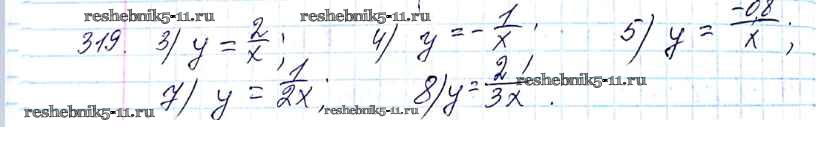 reshebnik5-11.ru reshebnik5-11.ru reshebnik5-11.ru
319. 3) y = 2/x; 4) y = -1/x; 5) y = -0,8/x;
7) y = 1/2x; 8) y = 2/3x.
reshebnik5-11.ru reshebnik5-11.ru reshebnik5-11.ru